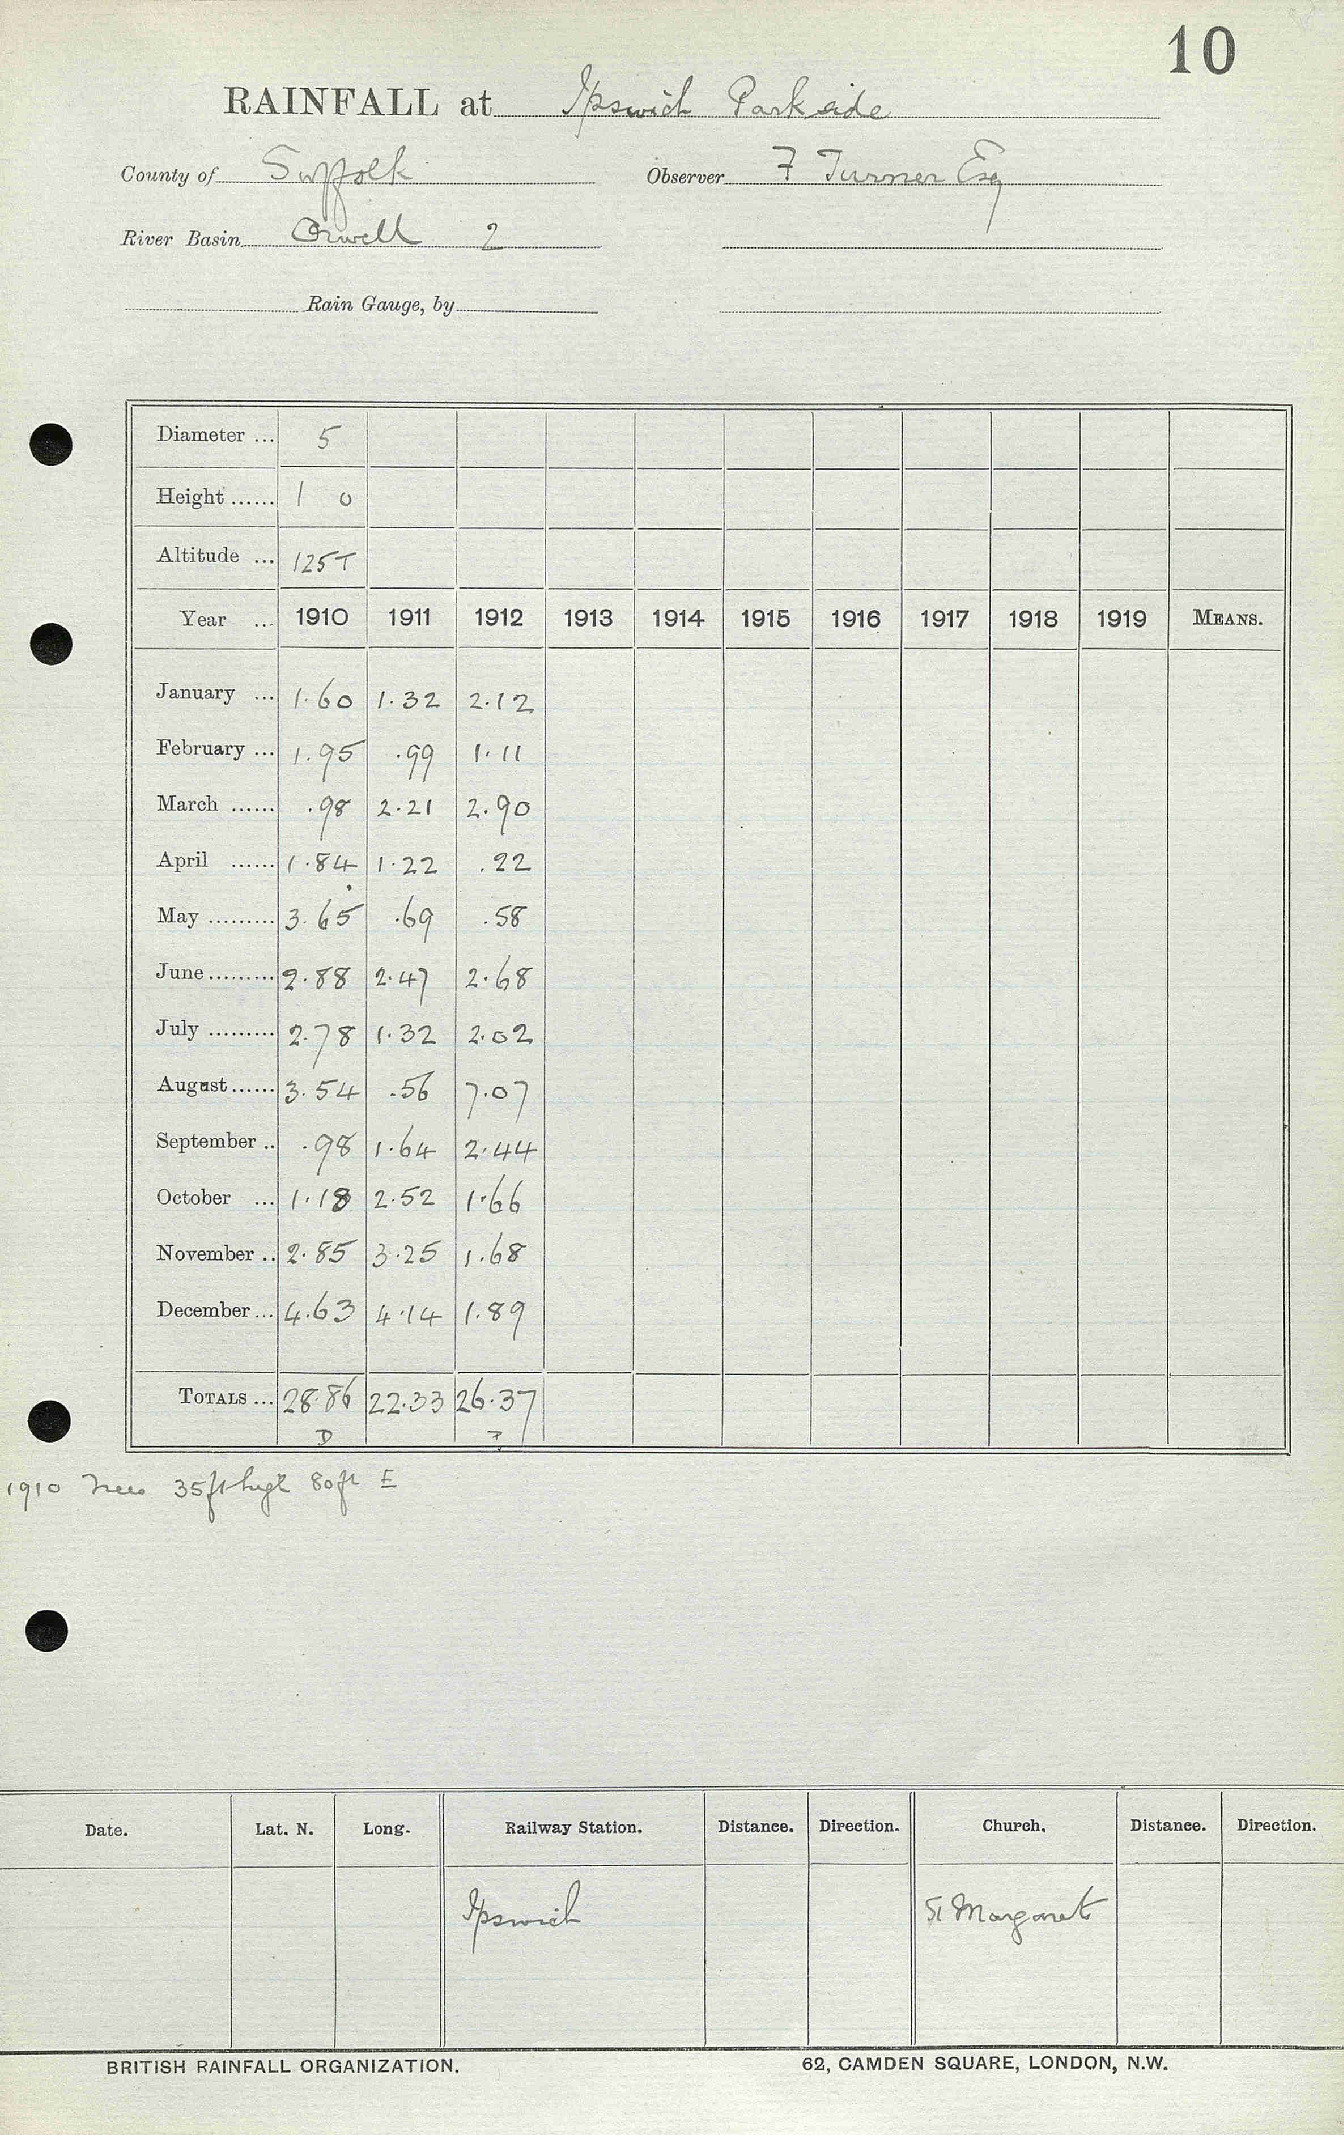 10
RAINFALL at Ipswich Parkside
County of Suffolk Observer F Turner Esq
River Basin Orwell 2
Rain Gauge, by
Diameter ... 5
Height ...... 1 0
Altitude ... 125T
Year ... 1910 1911 1912 1913 1914 1915 1916 1917 1918 1919 MEANS.
January ... 1.60 1.32 2.12
February ... 1.95 .99 1.11
March ...... .98 2.21 2.90
April ...... 1.84 1.22 .22
May ......... 3.65 .69 .58
June ......... 2.88 2.47 2.68
July ......... 2.78 1.32 2.02
August ...... 3.54 .56 7.07
September .. .98 1.64 2.44
October ... 1.18 2.52 1.66
November .. 2.85 3.25 1.68
December ... 4.63 4.14 1.89
TOTALS ... 28.86 22.33 26.37
D 7
1910 Trees 35ft high 80ft E
Date. Lat. N. Long. Railway Station. Distance. Direction. Church. Distance. Direction.
Ipswich St Margaret
BRITISH RAINFALL ORGANIZATION. 62, CAMDEN SQUARE, LONDON, N.W.